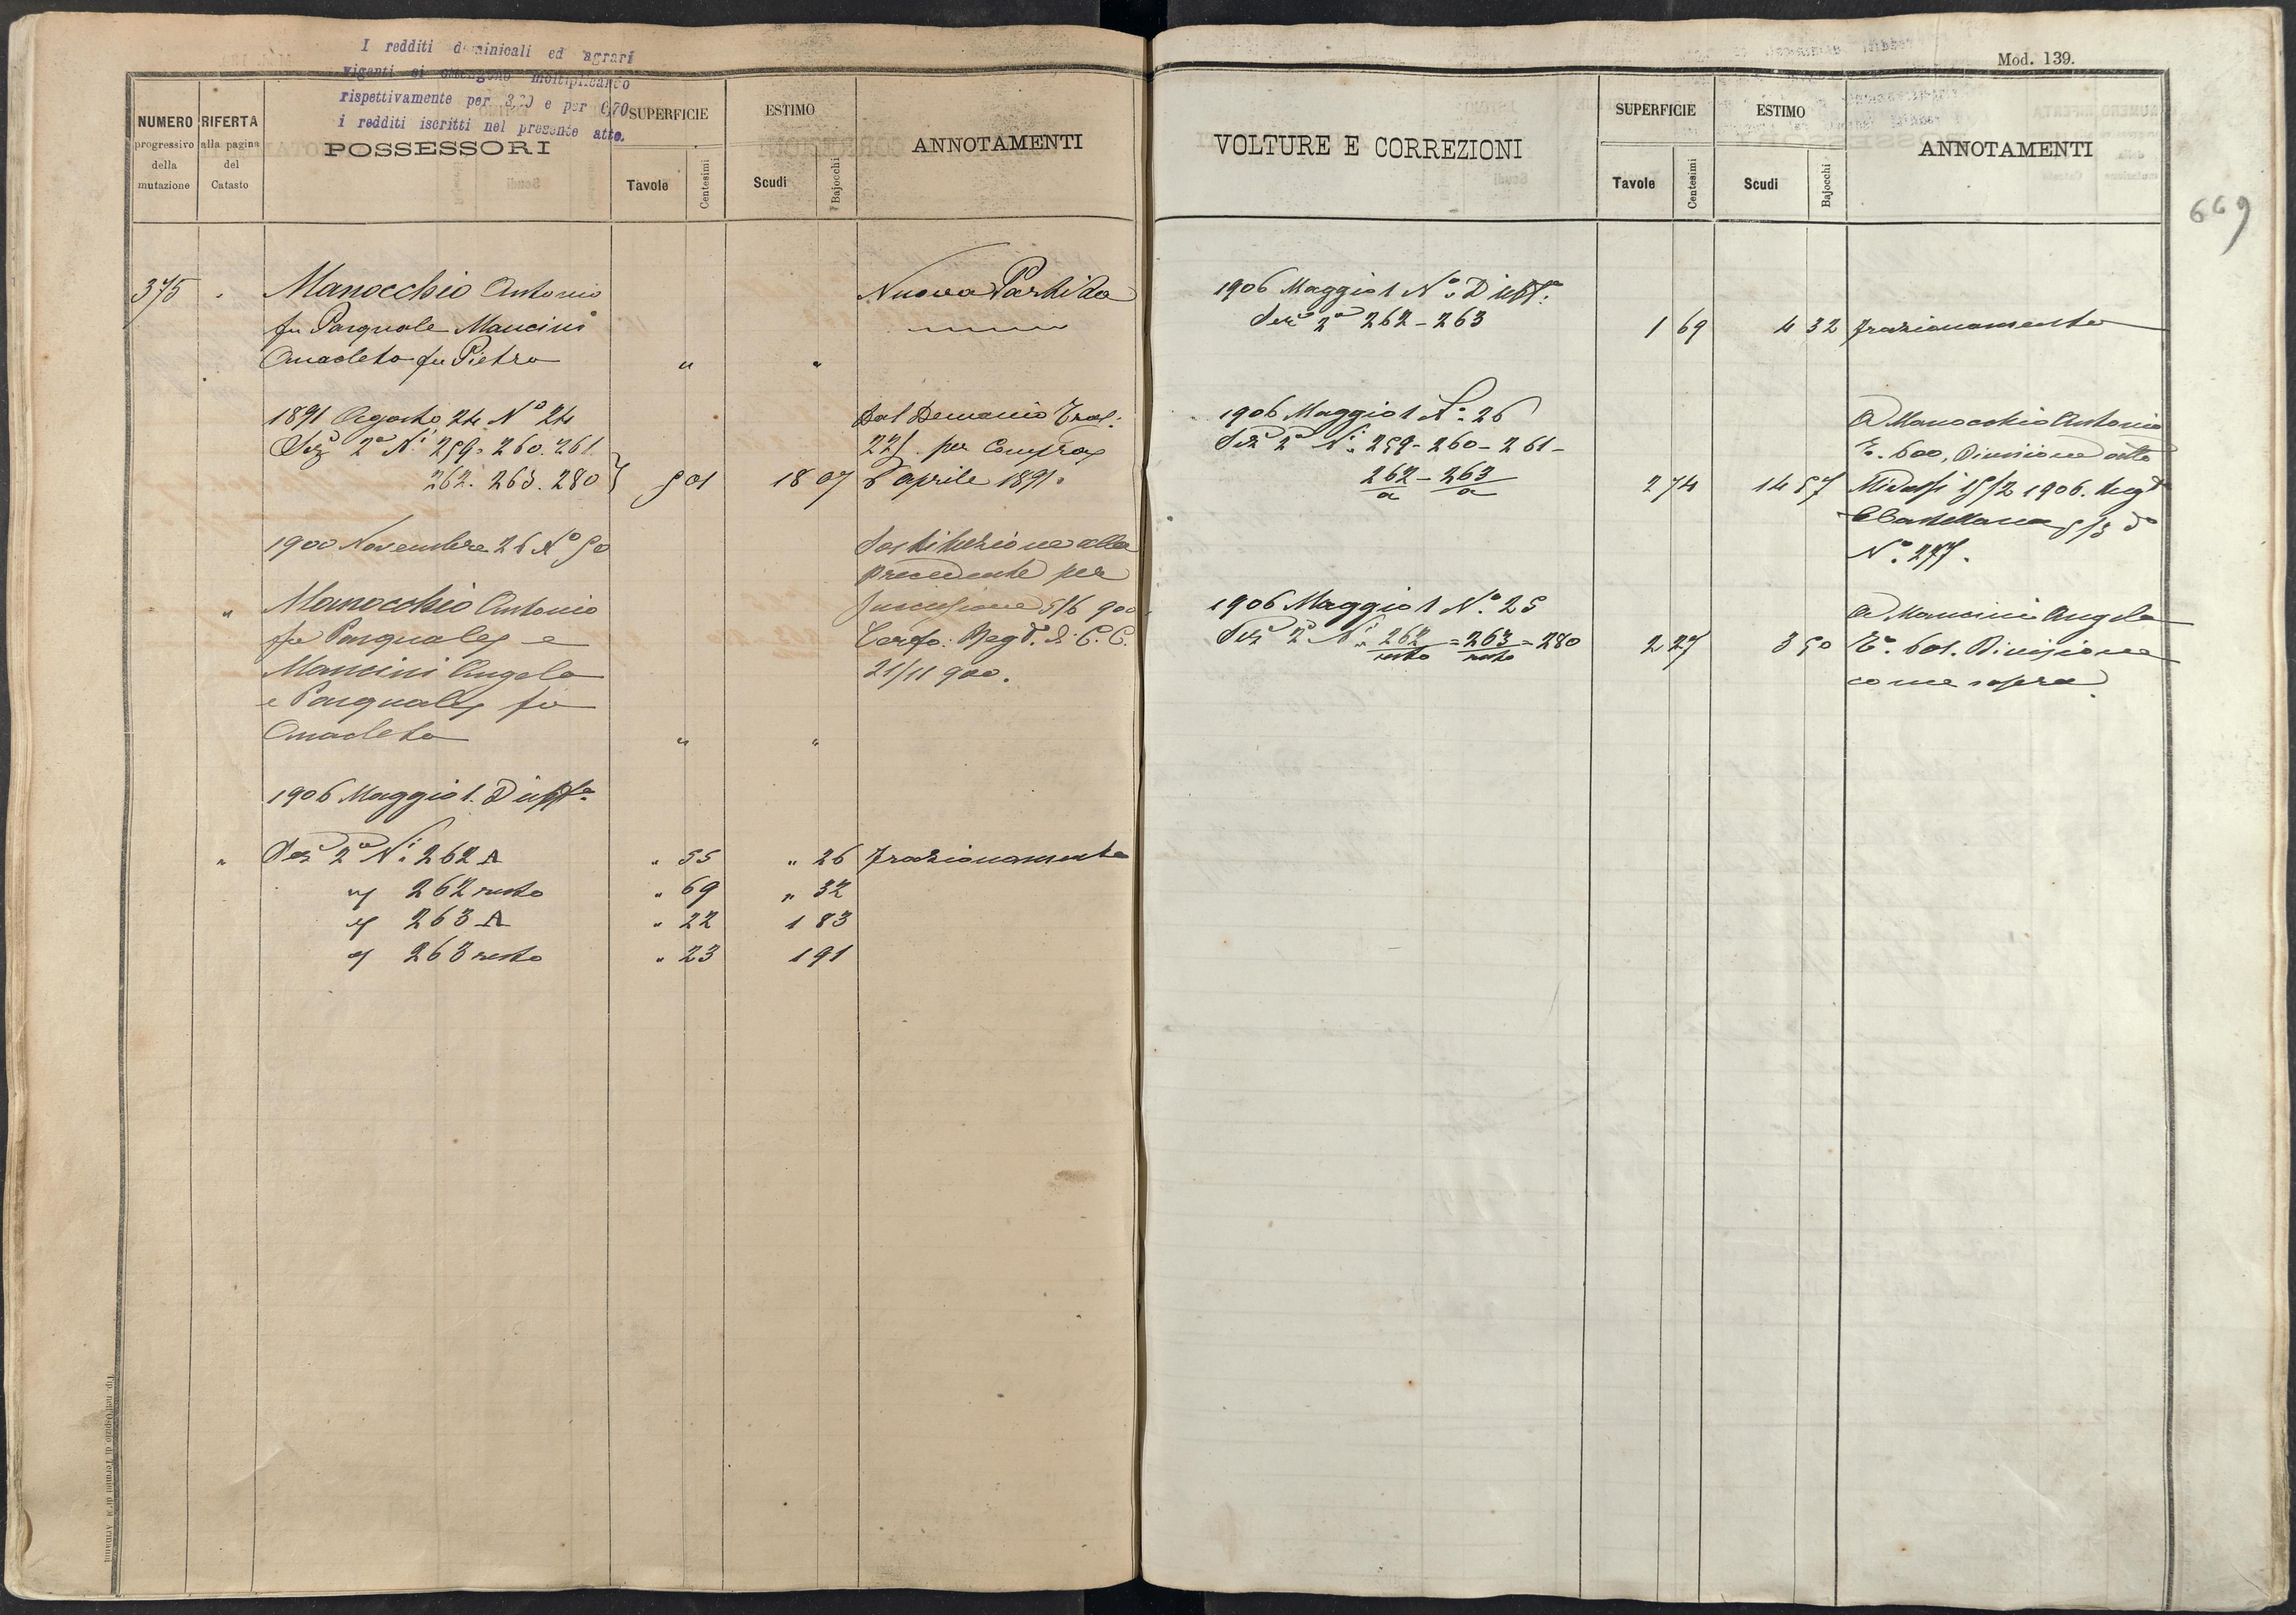 I redditi dominicali ed agrari
vigenti si ottengono moltiplicando
rispettivamente per 3,20 e per 0,70
i redditi iscritti nel presente atto.
NUMERO progressivo della mutazione
RIFERTA alla pagina del Catasto
POSSESSORI
SUPERFICIE
Tavole Centesimi
ESTIMO
Scudi Bajocchi
ANNOTAMENTI
375 Manocchio Antonio Nuova Partita
fu Pasquale Mancini
Anacleto fu Pietro " "
1891 Agosto 24 Nº 24 Dal Demanio
Sez 2ª Ni 259. 260. 261 per Compra
262. 263. 280 } 5 01 18 07 8 aprile 1891.
1900 Novembre 26 Nº 50 Sostituzione alla
precedente per
" Manocchio Antonio successione 5/6 900
fu Pasquale e
Mancini Angelo 21/11 900.
e Pasquale fu
Anacleto " "
1906 Maggio 1.
" Sez 2ª Ni 262 A " 55 " 26 frazionamento
" 262 resto " 69 " 32
" 263 A " 22 1 83
" 263 resto " 23 1 91
Tip. nell'Ospizio di Termini di
Mod. 139.
669
VOLTURE E CORREZIONI
SUPERFICIE
Tavole Centesimi
ESTIMO
Scudi Bajocchi
ANNOTAMENTI
1906 Maggio 1 Nº
Sez 2ª 262 - 263 1 69 4 32 frazionamento
1906 Maggio 1 Nº 26 A Manocchio Antonio
Sez 2ª Ni 259 - 260 - 261 - 600, Divisione atto
262/a - 263/a 2 74 14 57 15/2 1906.
Nº 277.
1906 Maggio 1 Nº 25 A Mancini Angelo
Sez 2ª Ni 262/resto = 263/resto = 280 2 27 3 50 601. Divisione
come sopra